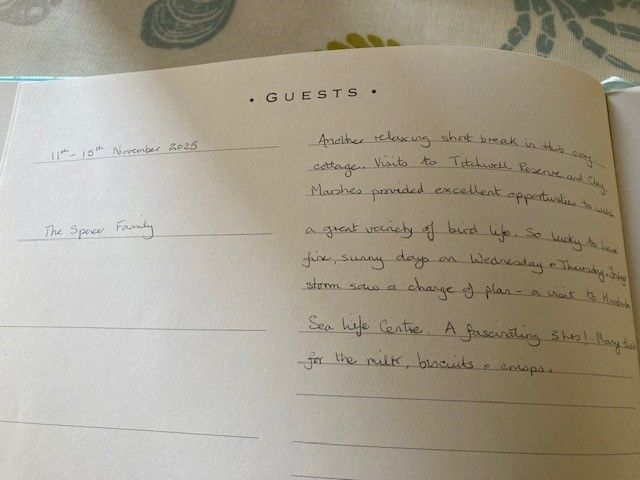 • GUESTS •
11th - 15th November 2025
Another relaxing short break in this cosy
cottage. Visits to Titchwell Reserve and Cley
Marshes provided excellent opportunities to watch
The Spencer Family
a great variety of bird life. So lucky to have
fine, sunny days on Wednesday + Thursday. Friday
storm saw a change of plan - a visit to Hunstanton
Sea Life Centre. A fascinating 3 hrs! Many
for the milk, biscuits + crisps.